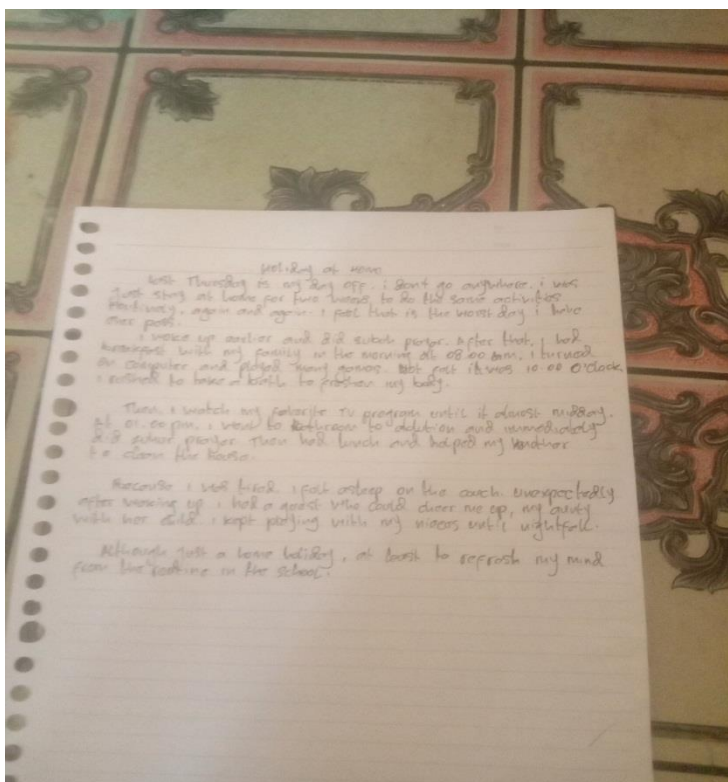 Holiday at Home
Last Thursday is my day off. i don't go anywhere. i was
Just stay at home for full to do the same activities
Routinely, again and again. I feel that is the worst day i have
ever pass.
I woke up earlier and did subuh prayer. After that, I had
breakfast with my family in the morning at 08.00 am, I turned
on computer and played many games. Not felt it was 10.00 O'clock,
I rushed to take a bath to freshen my body.
Then, I watch my favorite TV program until it almost midday.
at 01.00 pm, I went to bathroom to ablution and immediately
did prayer. Then had lunch and helped my mother
to clean the house.
Because I was tired. I felt asleep on the couch. Unexpectedly
after waking up, I had a guest who could cheer me up, my aunty
with her child. I kept playing with my nieces until nightfall.
Although just a home holiday, at least to refresh my mind
from the routine in the school.